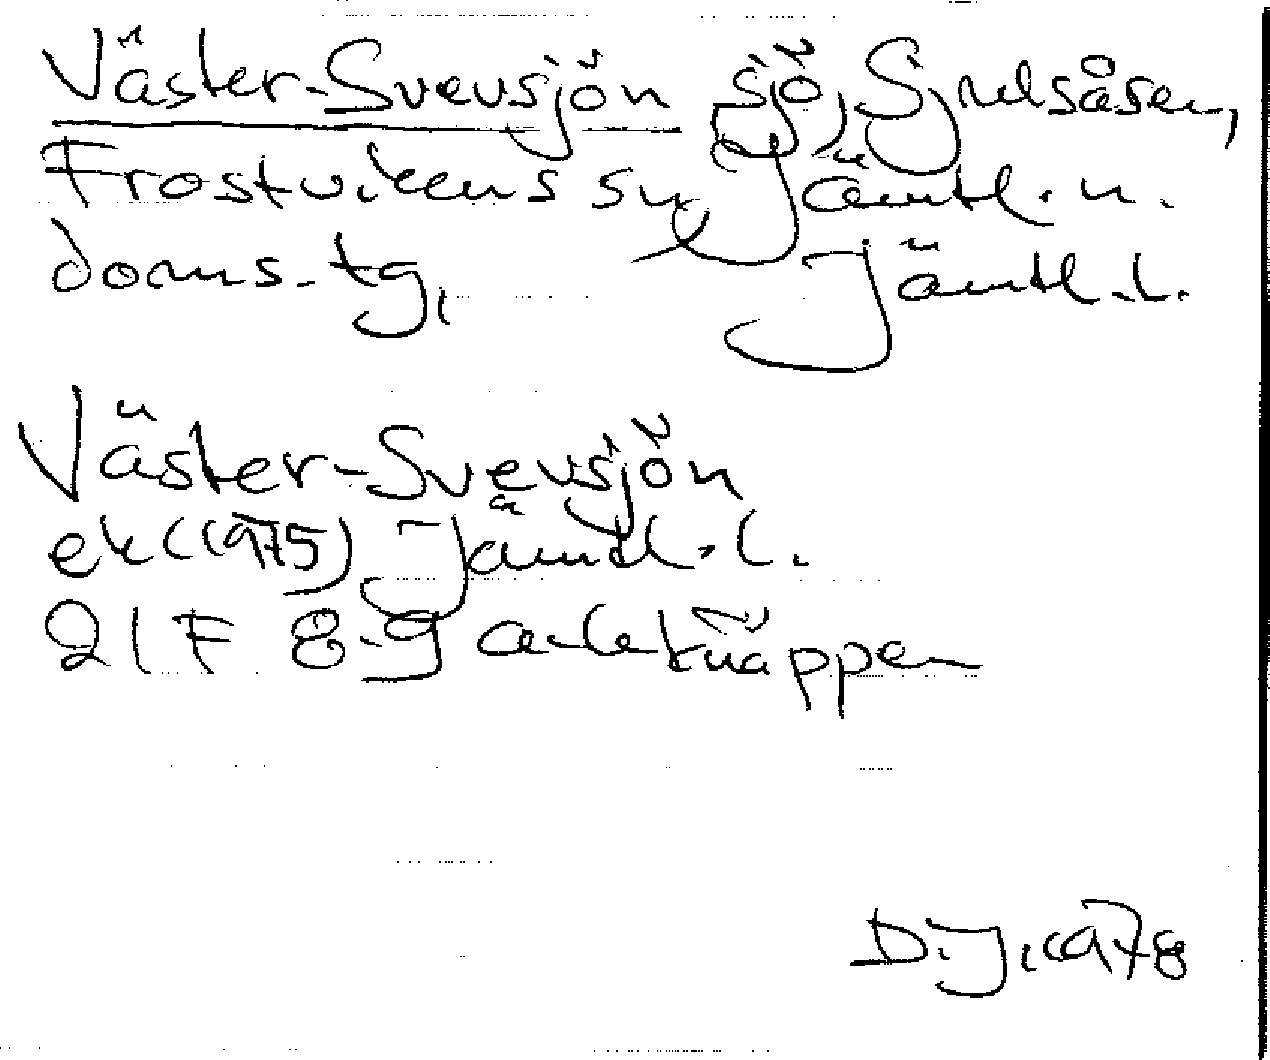 Väster-Svensjön sjö, Sjulsåsen,
Frostvikens sn, Jämtl. n.
doms. tg, Jämtl. l.
Väster-Svensjön
ek (1975) Jämtl. l.
21F 8-9
D. J. 1978